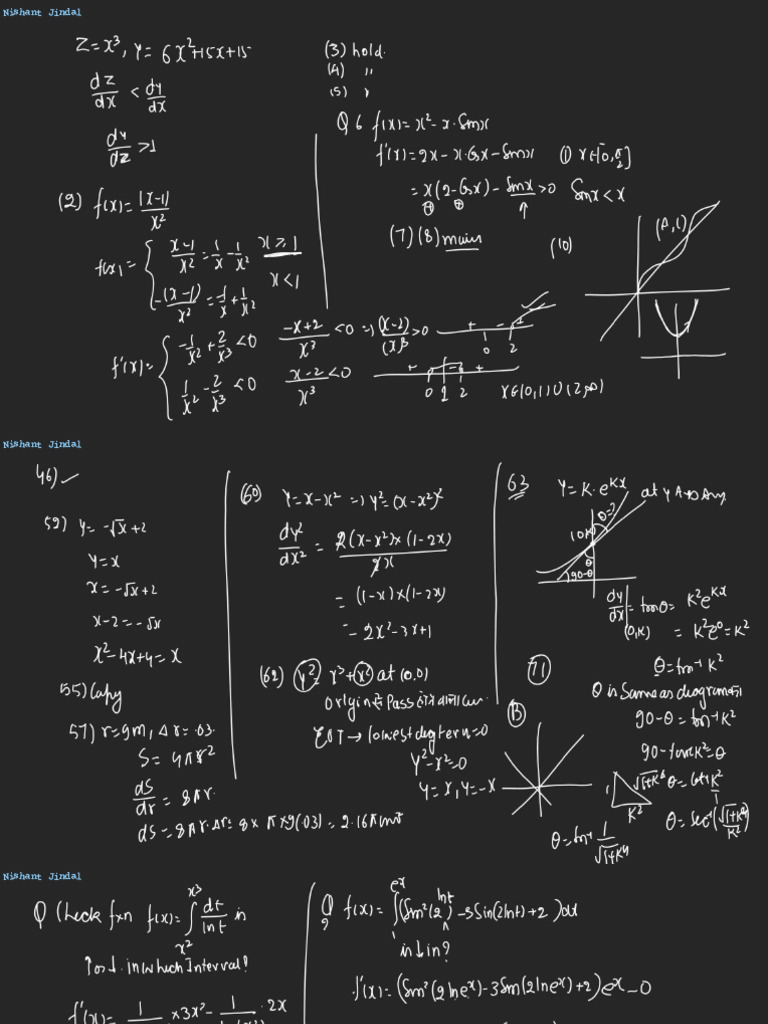 Nishant Jindal
Z=x³, y= 6x²+15x+15
dz/dx < dy/dx
dy/dz >1
(2) f(x)= |x-1|/x²
f(x)= { x-1/x² = 1/x - 1/x² x≥1
-(x-1)/x² = -1/x + 1/x² x<1
f'(x)= { -1/x² + 2/x³ <0 -x+2/x³ <0 =) (x-2)/(x)³ >0 + - + 0 2
1/x² - 2/x³ <0 x-2/x³ <0 + - + 0 1 2 x∈(0,1)∪(2,∞)
(3) hold.
(4) ,,
(5) ,
Q 6 f(x)= x²- x·Sinx
f'(x)= 2x-x·Cosx-Sinx (1) x∈[0,π/2]
= x(2-Cosx)-Sinx>0 Sinx<x
+ +
(7) (8) main
(10)
Nishant Jindal
46)
52) y= -√x+2
y=x
x= -√x+2
x-2= -√x
x²-4x+4=x
55) Copy
57) r=9m, Δr=.03
S= 4πr²
dS/dr = 8πr.
dS= 8πr.Δr= 8×π×9(.03) = 2.16πm²
(60) y=x-x² =) y²= (x-x²)²
dy²/dx² = 2(x-x²)×(1-2x)/2x
= (1-x)×(1-2x)
= 2x²-3x+1
(62) y² = x³+x² at (0,0)
EOT → lowest deg term=0
y²-x²=0
y=x, y=-x
63 y= K.e^Kx
θ=?
(0,K)
θ
90-θ
dy/dx|(0,K) = tanθ= K²e^Kx
= K²e⁰=K²
θ=tan⁻¹ K²
θ is same as diagram
90-θ= tan⁻¹K²
90-tan⁻¹K²=θ
θ=Cot⁻¹K²
1 √1+K⁴ K²
θ= sec⁻¹(√1+K⁴/K²)
71
13
θ=sin⁻¹ 1/√1+K⁴
Nishant Jindal
Q Check fxn f(x)= ∫ x² x³ dt/lnt is
↑ or ↓ in which Interval?
f'(x)= 1 ×3x²- 1 ·2x
Q f(x)= ∫ e^x (Sin²(2lnt)-3Sin(2lnt)+2)dt
is ↓ in?
f'(x)= (Sin²(2lne^x)-3Sin(2lne^x)+2)e^x-0